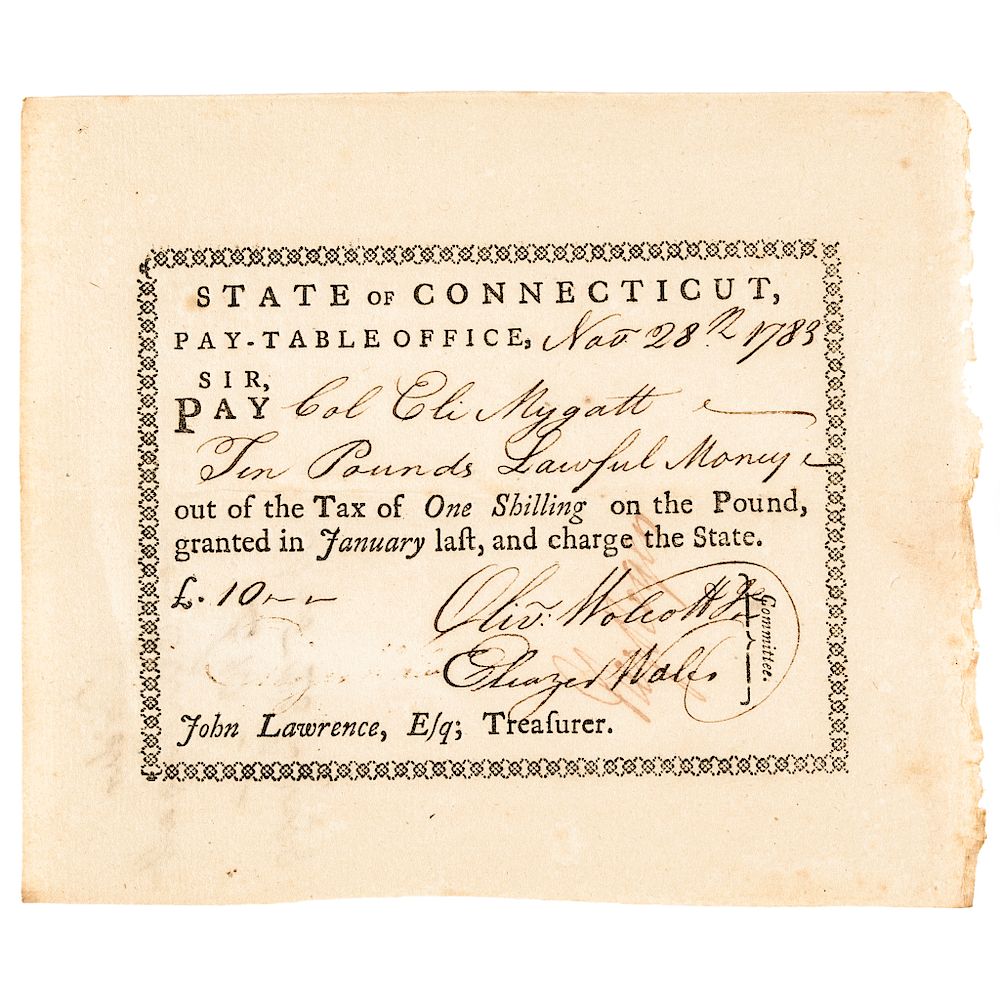 STATE OF CONNECTICUT,
PAY-TABLE OFFICE, Nov 28th 1783
SIR,
PAY Col Eli Mygatt
Ten Pounds Lawful Money
out of the Tax of One Shilling on the Pound,
granted in January laſt, and charge the State.
£. 10 - -
Oliv: Wolcott Jr
Eleazer Wales
Committee.
John Lawrence, Eſq; Treaſurer.